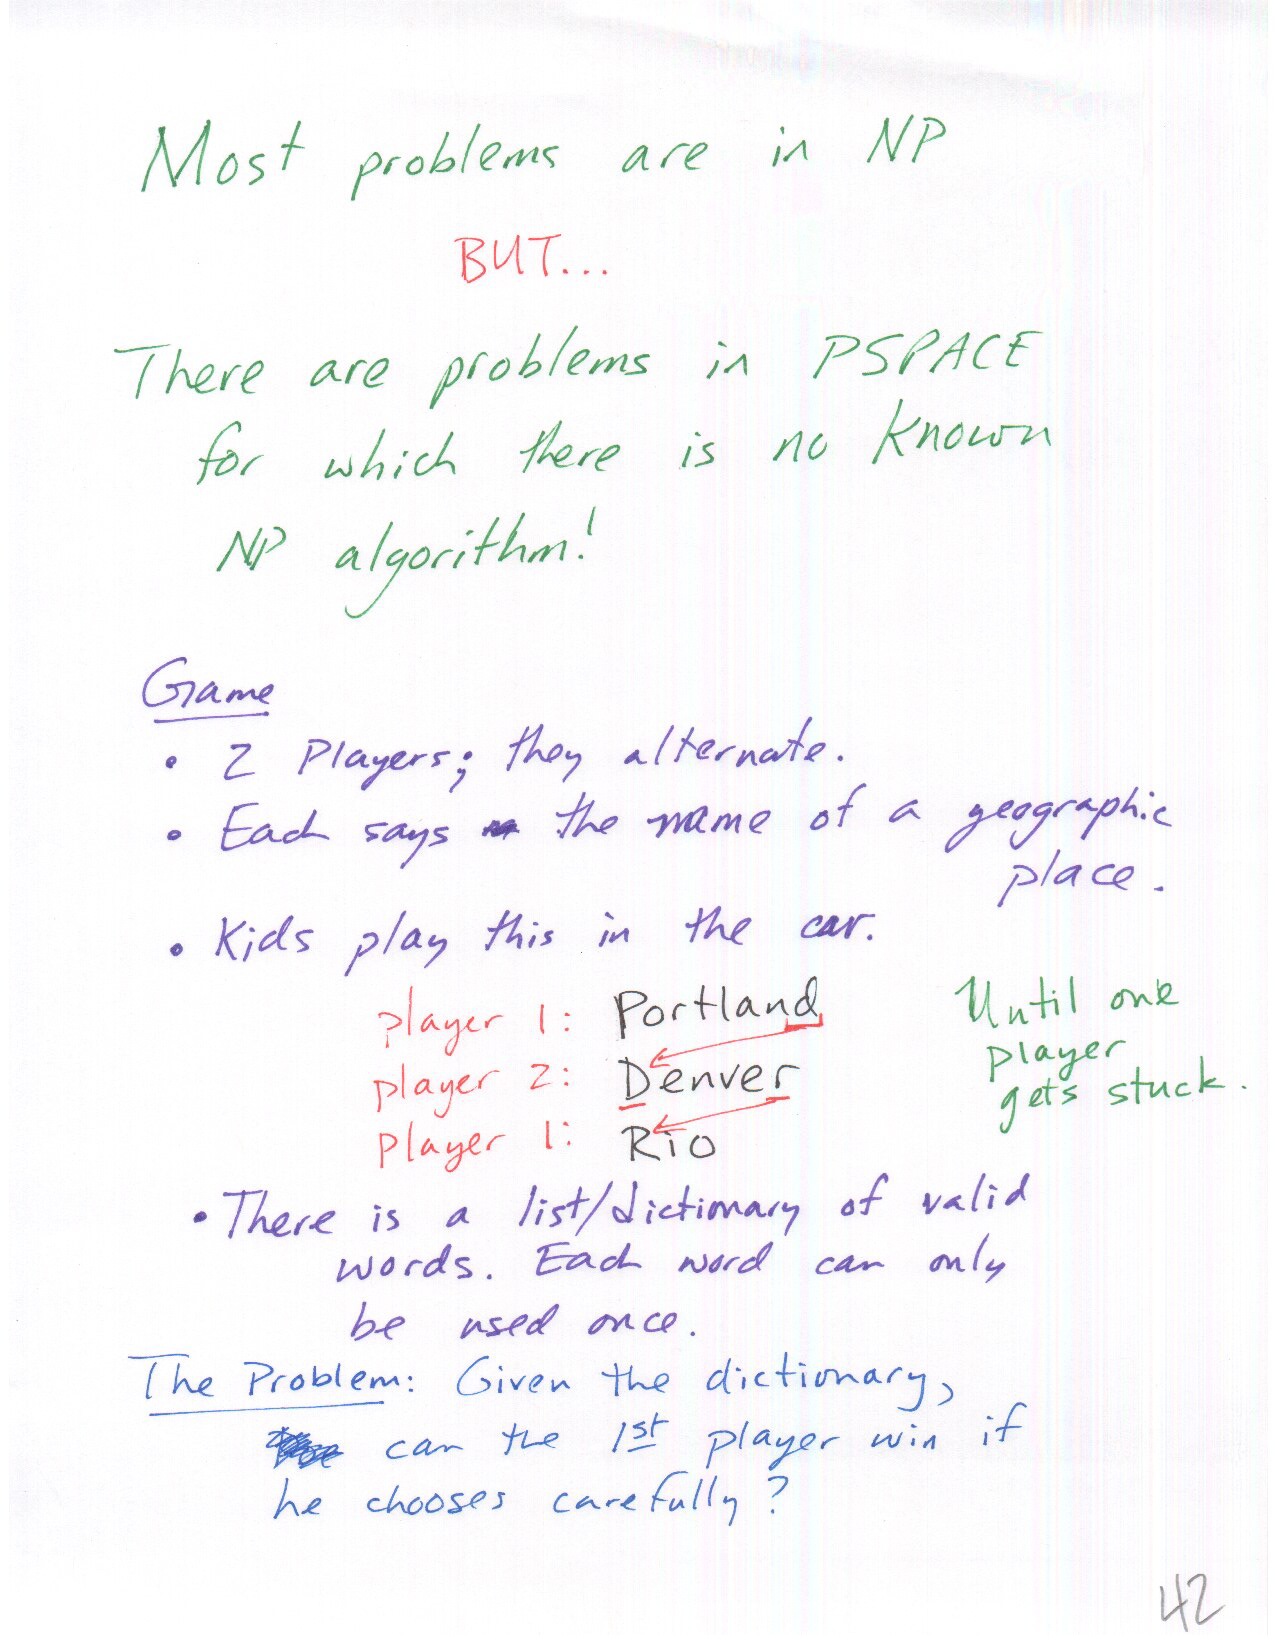 Most problems are in NP
BUT...
There are problems in PSPACE
for which there is no known
NP algorithm!
Game
• 2 Players; they alternate.
• Each says the name of a geographic
place.
• Kids play this in the car.
player 1: Portland
player 2: Denver
player 1: Rio
Until one
player
gets stuck.
• There is a list/dictionary of valid
words. Each word can only
be used once.
The Problem: Given the dictionary,
can the 1st player win if
he chooses carefully?
42